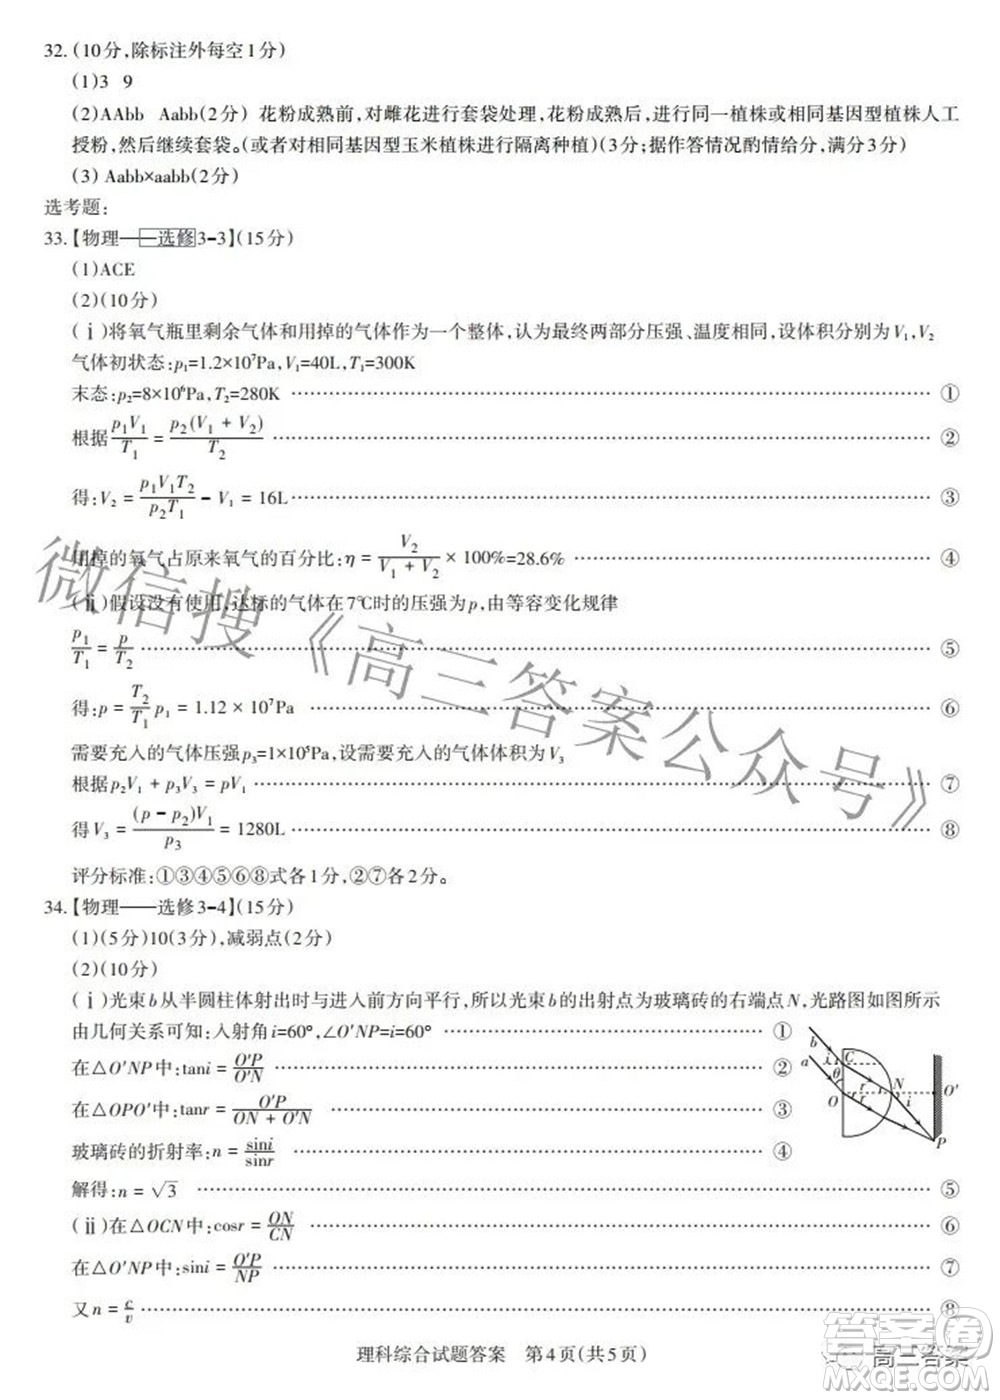 32.(10分,除标注外每空1分)
(1)3 9
(2)AAbb Aabb(2分) 花粉成熟前,对雌花进行套袋处理,花粉成熟后,进行同一植株或相同基因型植株人工
授粉,然后继续套袋。(或者对相同基因型玉米植株进行隔离种植)(3分;据作答情况酌情给分,满分3分)
(3) Aabb×aabb(2分)
选考题:
33.【物理——选修3-3】(15分)
(1)ACE
(2)(10分)
(ⅰ)将氧气瓶里剩余气体和用掉的气体作为一个整体,认为最终两部分压强、温度相同,设体积分别为V₁,V₂
气体初状态:p₁=1.2×10⁷Pa,V₁=40L,T₁=300K
末态:p₂=8×10⁶Pa,T₂=280K ①
根据 p₁V₁/T₁ = p₂(V₁ + V₂)/T₂ ②
得:V₂ = p₁V₁T₂/p₂T₁ − V₁ = 16L ③
用掉的氧气占原来氧气的百分比:η = V₂/(V₁ + V₂) × 100%=28.6% ④
(ⅱ)假设没有使用,达标的气体在7℃时的压强为p,由等容变化规律
p₁/T₁ = p/T₂ ⑤
得:p = T₂/T₁ p₁ = 1.12 × 10⁷Pa ⑥
需要充入的气体压强p₃=1×10⁵Pa,设需要充入的气体体积为V₃
根据p₂V₁ + p₃V₃ = pV₁ ⑦
得V₃ = (p − p₂)V₁/p₃ = 1280L ⑧
评分标准:①③④⑤⑥⑧式各1分,②⑦各2分。
34.【物理——选修3-4】(15分)
(1)(5分)10(3分),减弱点(2分)
(2)(10分)
(ⅰ)光束b从半圆柱体射出时与进入前方向平行,所以光束b的出射点为玻璃砖的右端点N,光路图如图所示
由几何关系可知:入射角i=60°,∠O′NP=i=60° ①
在△O′NP中:tani = O′P/O′N ②
在△OPO′中:tanr = O′P/(ON + O′N) ③
玻璃砖的折射率:n = sini/sinr ④
解得:n = √3 ⑤
(ⅱ)在△OCN中:cosr = ON/CN ⑥
在△O′NP中:sini = O′P/NP ⑦
又n = c/v ⑧
b
a
i
C
θ
r
N
O
r
i
O′
P
理科综合试题答案 第4页(共5页)
微信搜《高三答案公众号》
高三答案
答案圈
MXQE.COM